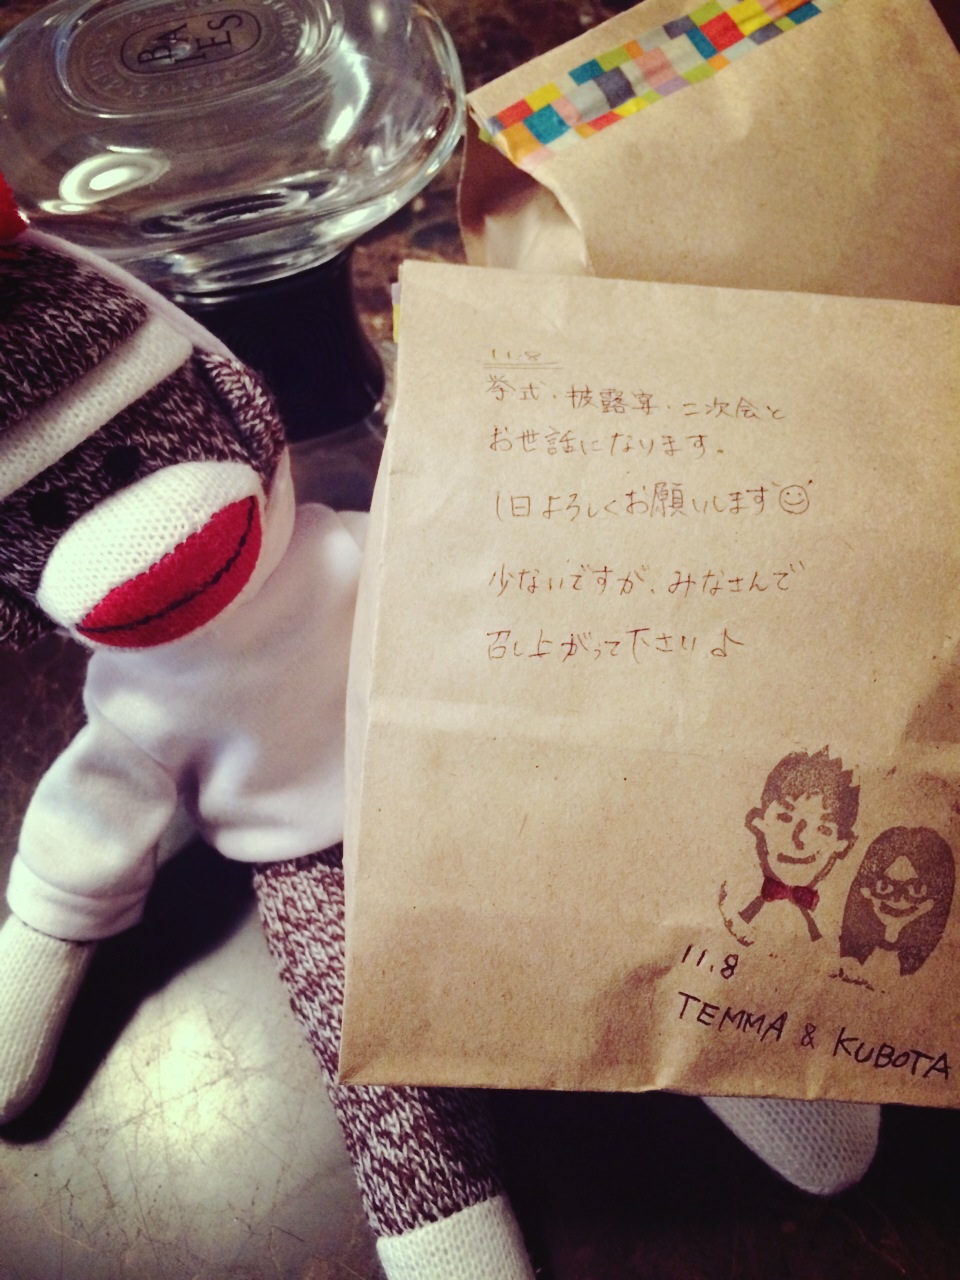 BA
IES
11.8
挙式・披露宴・二次会と
お世話になります。
1日よろしくお願いします☺
少ないですが、みなさんで
召し上がって下さい♪
11.8
TEMMA & KUBOTA